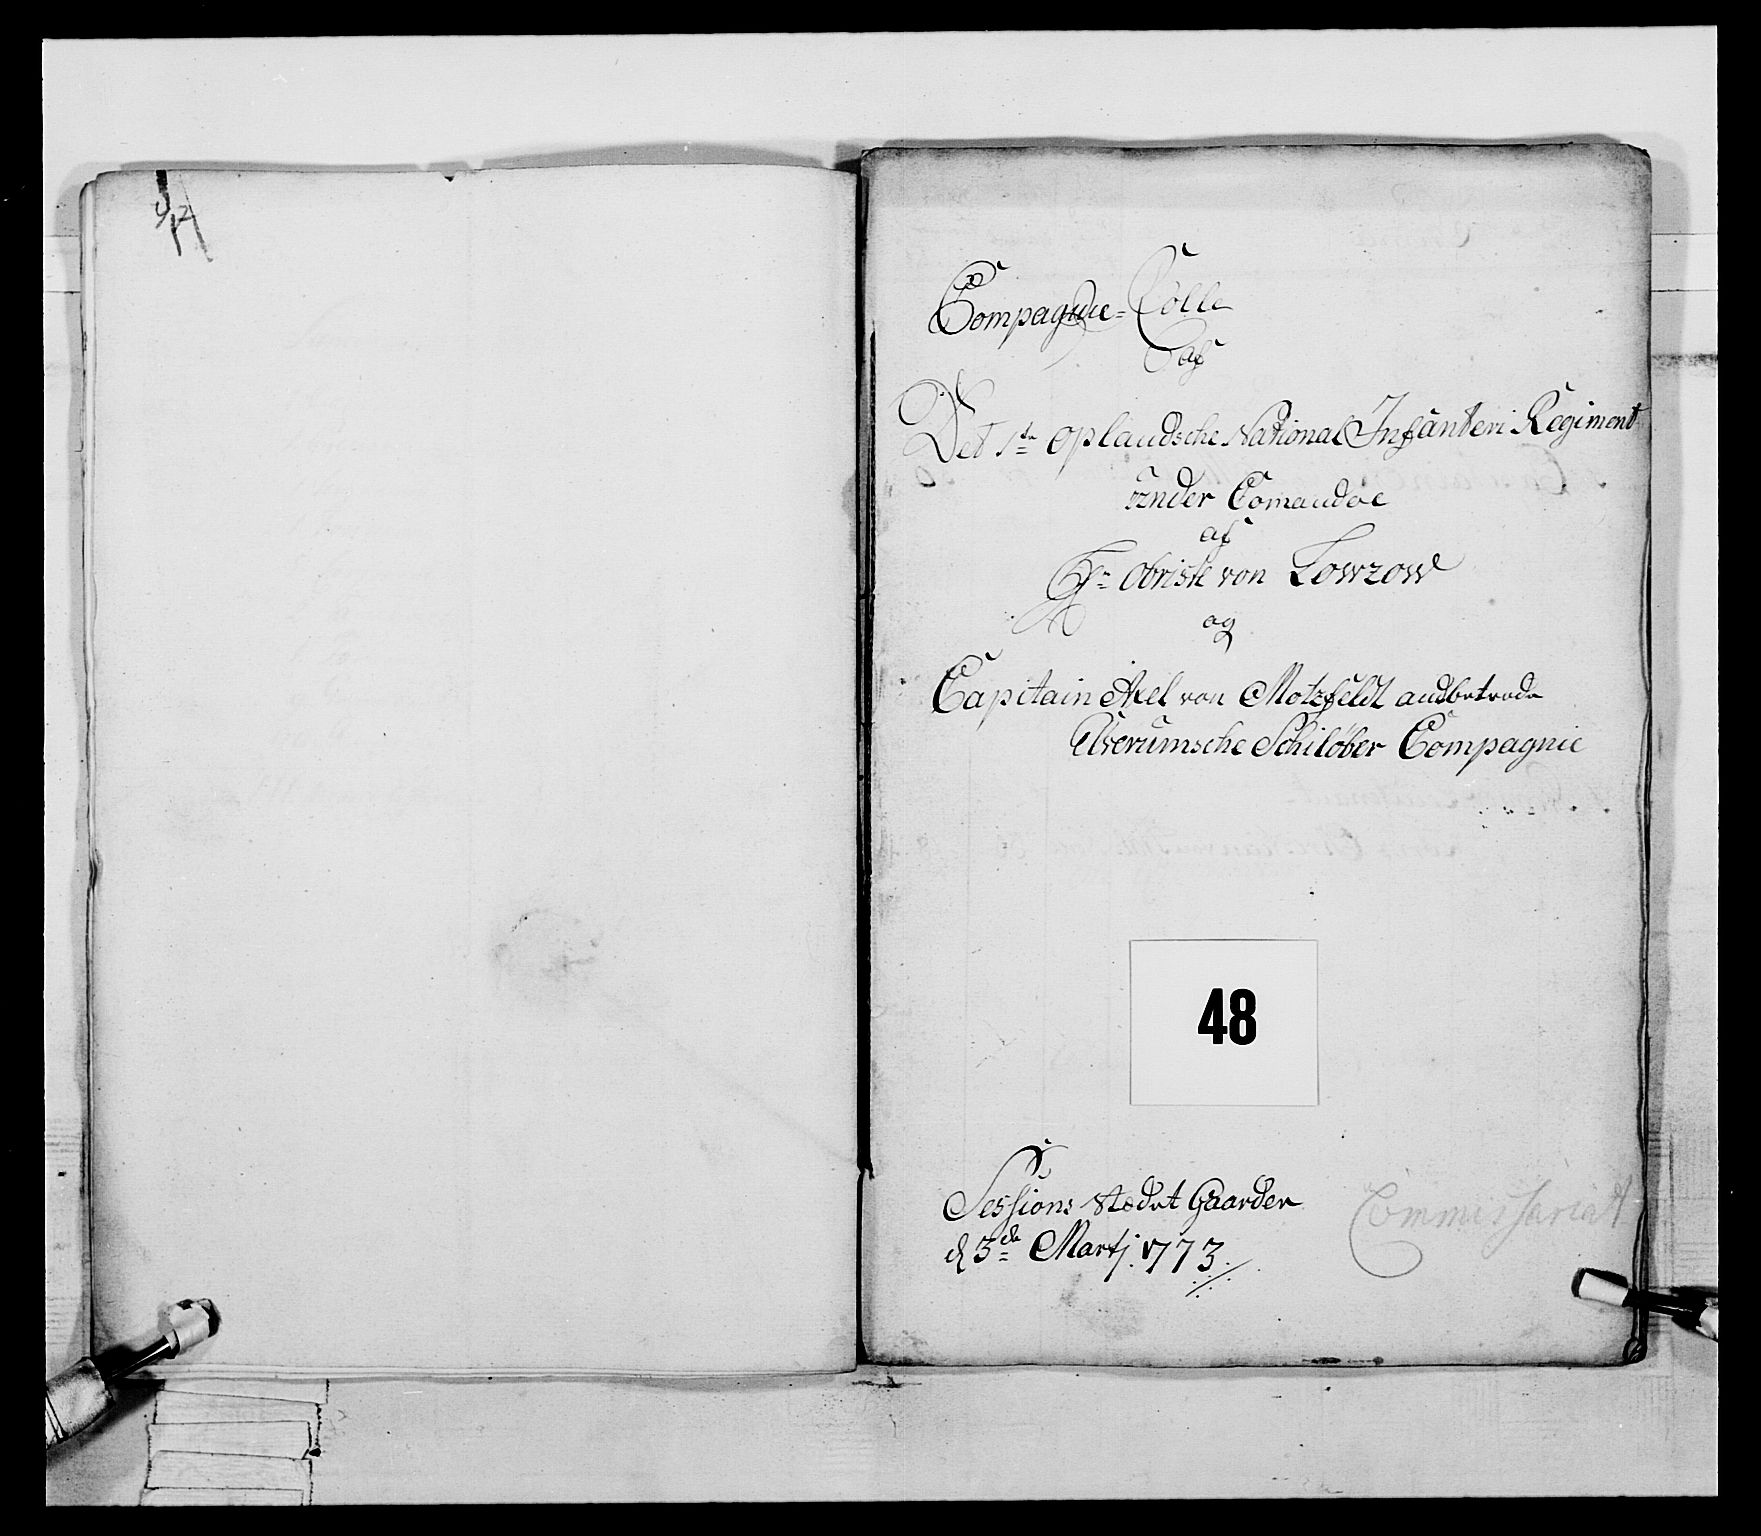 Compagnie-Rolle
af
Det 1te Oplandsche National Infanteri Regiment
Under Comandoe
af
Hr Obriste von Lowzow
og
Capitain Axel von Motzfeldt anbetrode
Elverumsche Schiløber Compagnie
48
Sessions Stædet Gaarder
d 3de Martj. 1773.
Commissariat